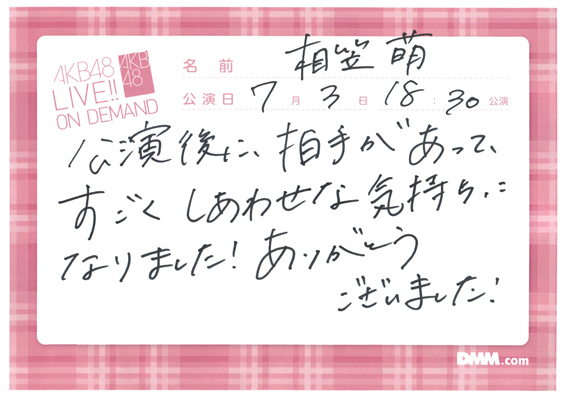 AKB48
LIVE!!
ON DEMAND
AKB
48
名前 相笠萌
公演日 7月3日 18:30公演
公演後に、拍手があって、
すごくしあわせな気持ちに
なりました!ありがとう
ございました!
DMM.com